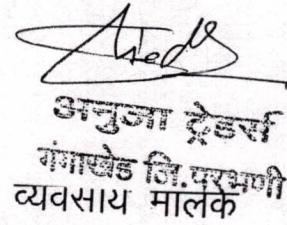 अनुजा ट्रेडर्स
गंगाखेड जि.परभणी
व्यवसाय मालके